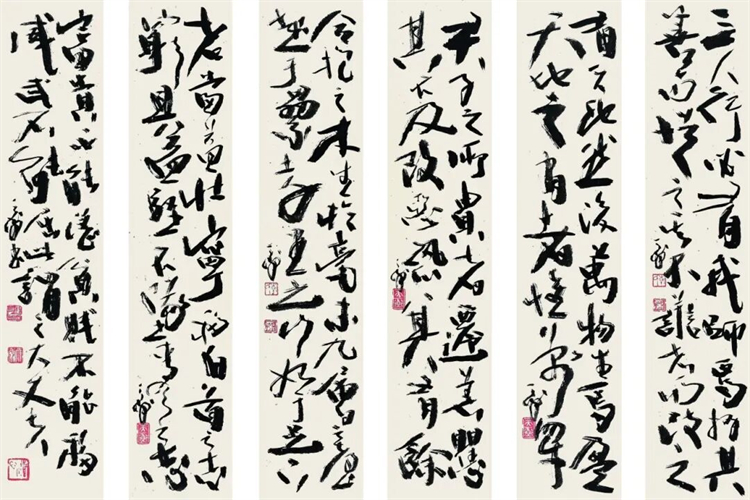 三人行必有我師焉擇其
善而從之其不善者而改之
有天地然後萬物生焉盈
天地之間者唯萬物
君子之所貴者遷善懼
其不及改惡恐其有餘
合抱之木生於毫末九層之臺
起于累土千里之行始于足下
老當益壯寧移白首之
窮且益堅不墜青雲之志
富貴不能淫貧賤不能移
威武不能屈此謂之大丈夫